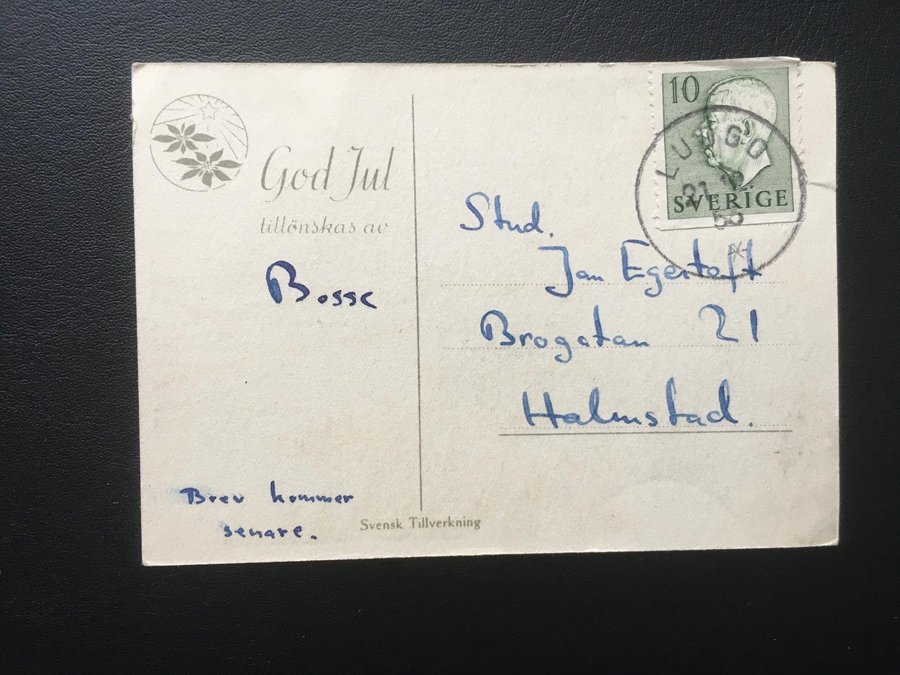 God Jul
tillönskas av
Bosse
Brev kommer
senare.
Svensk Tillverkning
10
SVERIGE
21 12
Stud.
Jan Egertoft
Brogatan 21
Halmstad.